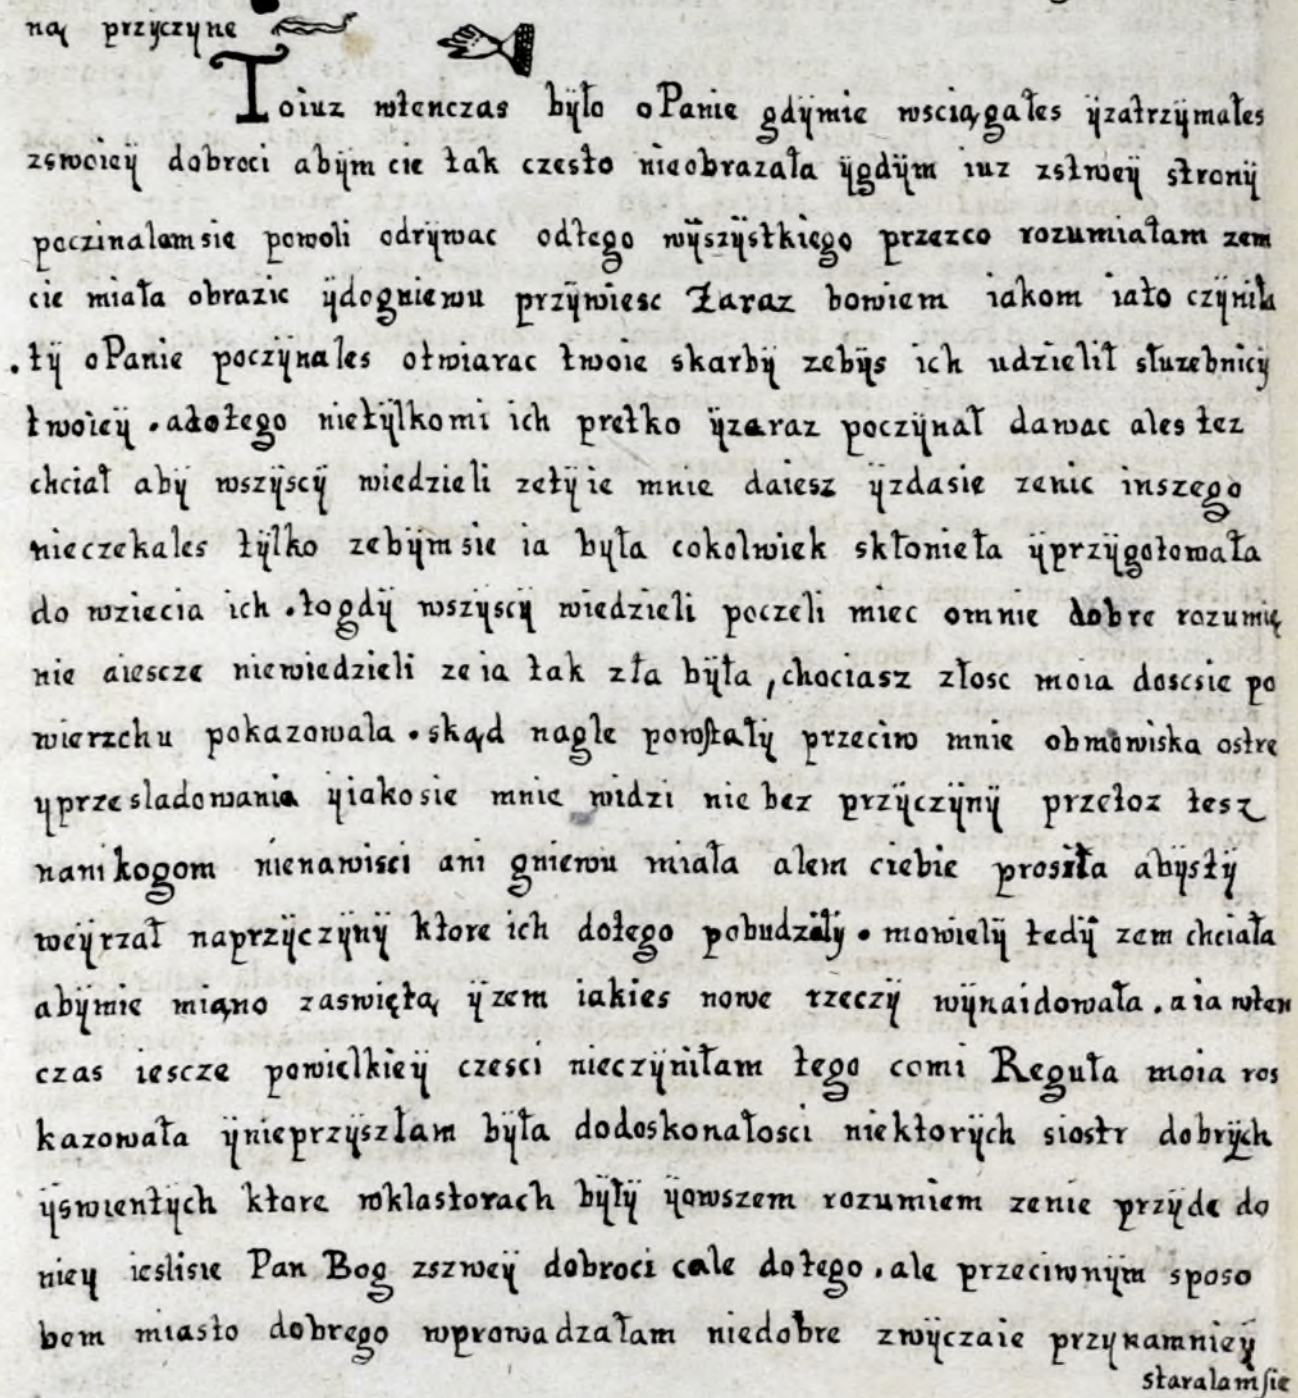 ną przÿczÿne
Toiuz wtenczas bÿło oPanie gdÿmie wsciągałes ÿzatrzÿmałes
zswoieÿ dobroci abÿm cie tak czesto nieobrazała ÿgdÿm iuz zstweÿ stronÿ
poczinalamsie powoli odrÿwac odtego wÿszÿstkiego przezco rozumiałam zem
cie miała obrazic ÿdogniewu przÿwiesc Zaraz bowiem iakom iato czÿniła
.tÿ oPanie poczÿnales otwiarac twoie skarbÿ zebÿs ich udzielił słuzebnicÿ
twoieÿ . adotego nietÿlkomi ich pretko ÿzaraz poczÿnał dawac ales tez
chciał abÿ wszÿscÿ wiedzieli zetÿie mnie daiesz ÿzdasie zenic inszego
nieczekales tÿlko zebÿmsie ia była cokolwiek skłonieła ÿprzÿgotowała
do wziecia ich . togdÿ wszyscÿ wiedzieli poczeli miec omnie dobre rozumię
nie aiescze niewiedzieli zeia tak zła bÿła , chociasz złosc moia doscsie po
wierzchu pokazowala . skąd nagle powstałÿ przeciw mnie obmowiska ostre
yprzesladowania ÿiakosie mnie widzi nie bez przÿczÿnÿ przetoz tesz
nanikogom nienawisci ani gniewu miała alem ciebie prosiła abÿstÿ
weÿrzał naprzÿczÿnÿ ktore ich dotego pobudzałÿ . mowielÿ tedÿ zem chciała
abÿmie miąno zaswiętą ÿzem iakies nowe rzeczÿ wÿnaidowała . aia wten
czas iescze powielkieÿ czesci nieczÿniłam tego comi Reguła moia ros
kazowała ÿnieprzÿszłam bÿła dodoskonałosci niektorÿch siostr dobrÿch
ÿswientÿch ktore wklastorach bÿłÿ ÿowszem rozumiem zenie przÿde do
niey ieslisie Pan Bog zszweÿ dobroci cale dotego . ale przeciwnÿm sposo
bem miasto dobrego wprowadzałam niedobre zwÿczaie przynamnieÿ
staralamsie